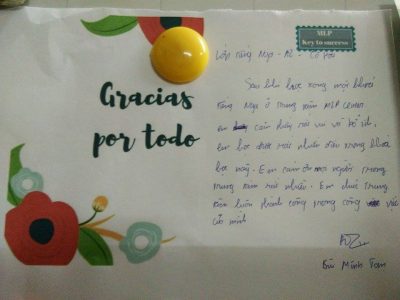 Gracias
por todo
MLP
Key to success
Lớp tiếng Nga - A2 - Cô
Sau khi học xong một khoá
tiếng Nga ở trung tâm MLP Center
em cảm thấy rất vui và bổ ích,
em học được rất nhiều điều trong khoá
học này. Em cảm ơn mọi người trong
trung tâm rất nhiều. Em chúc trung
tâm luôn thành công trong công việc
của mình
Bùi Minh